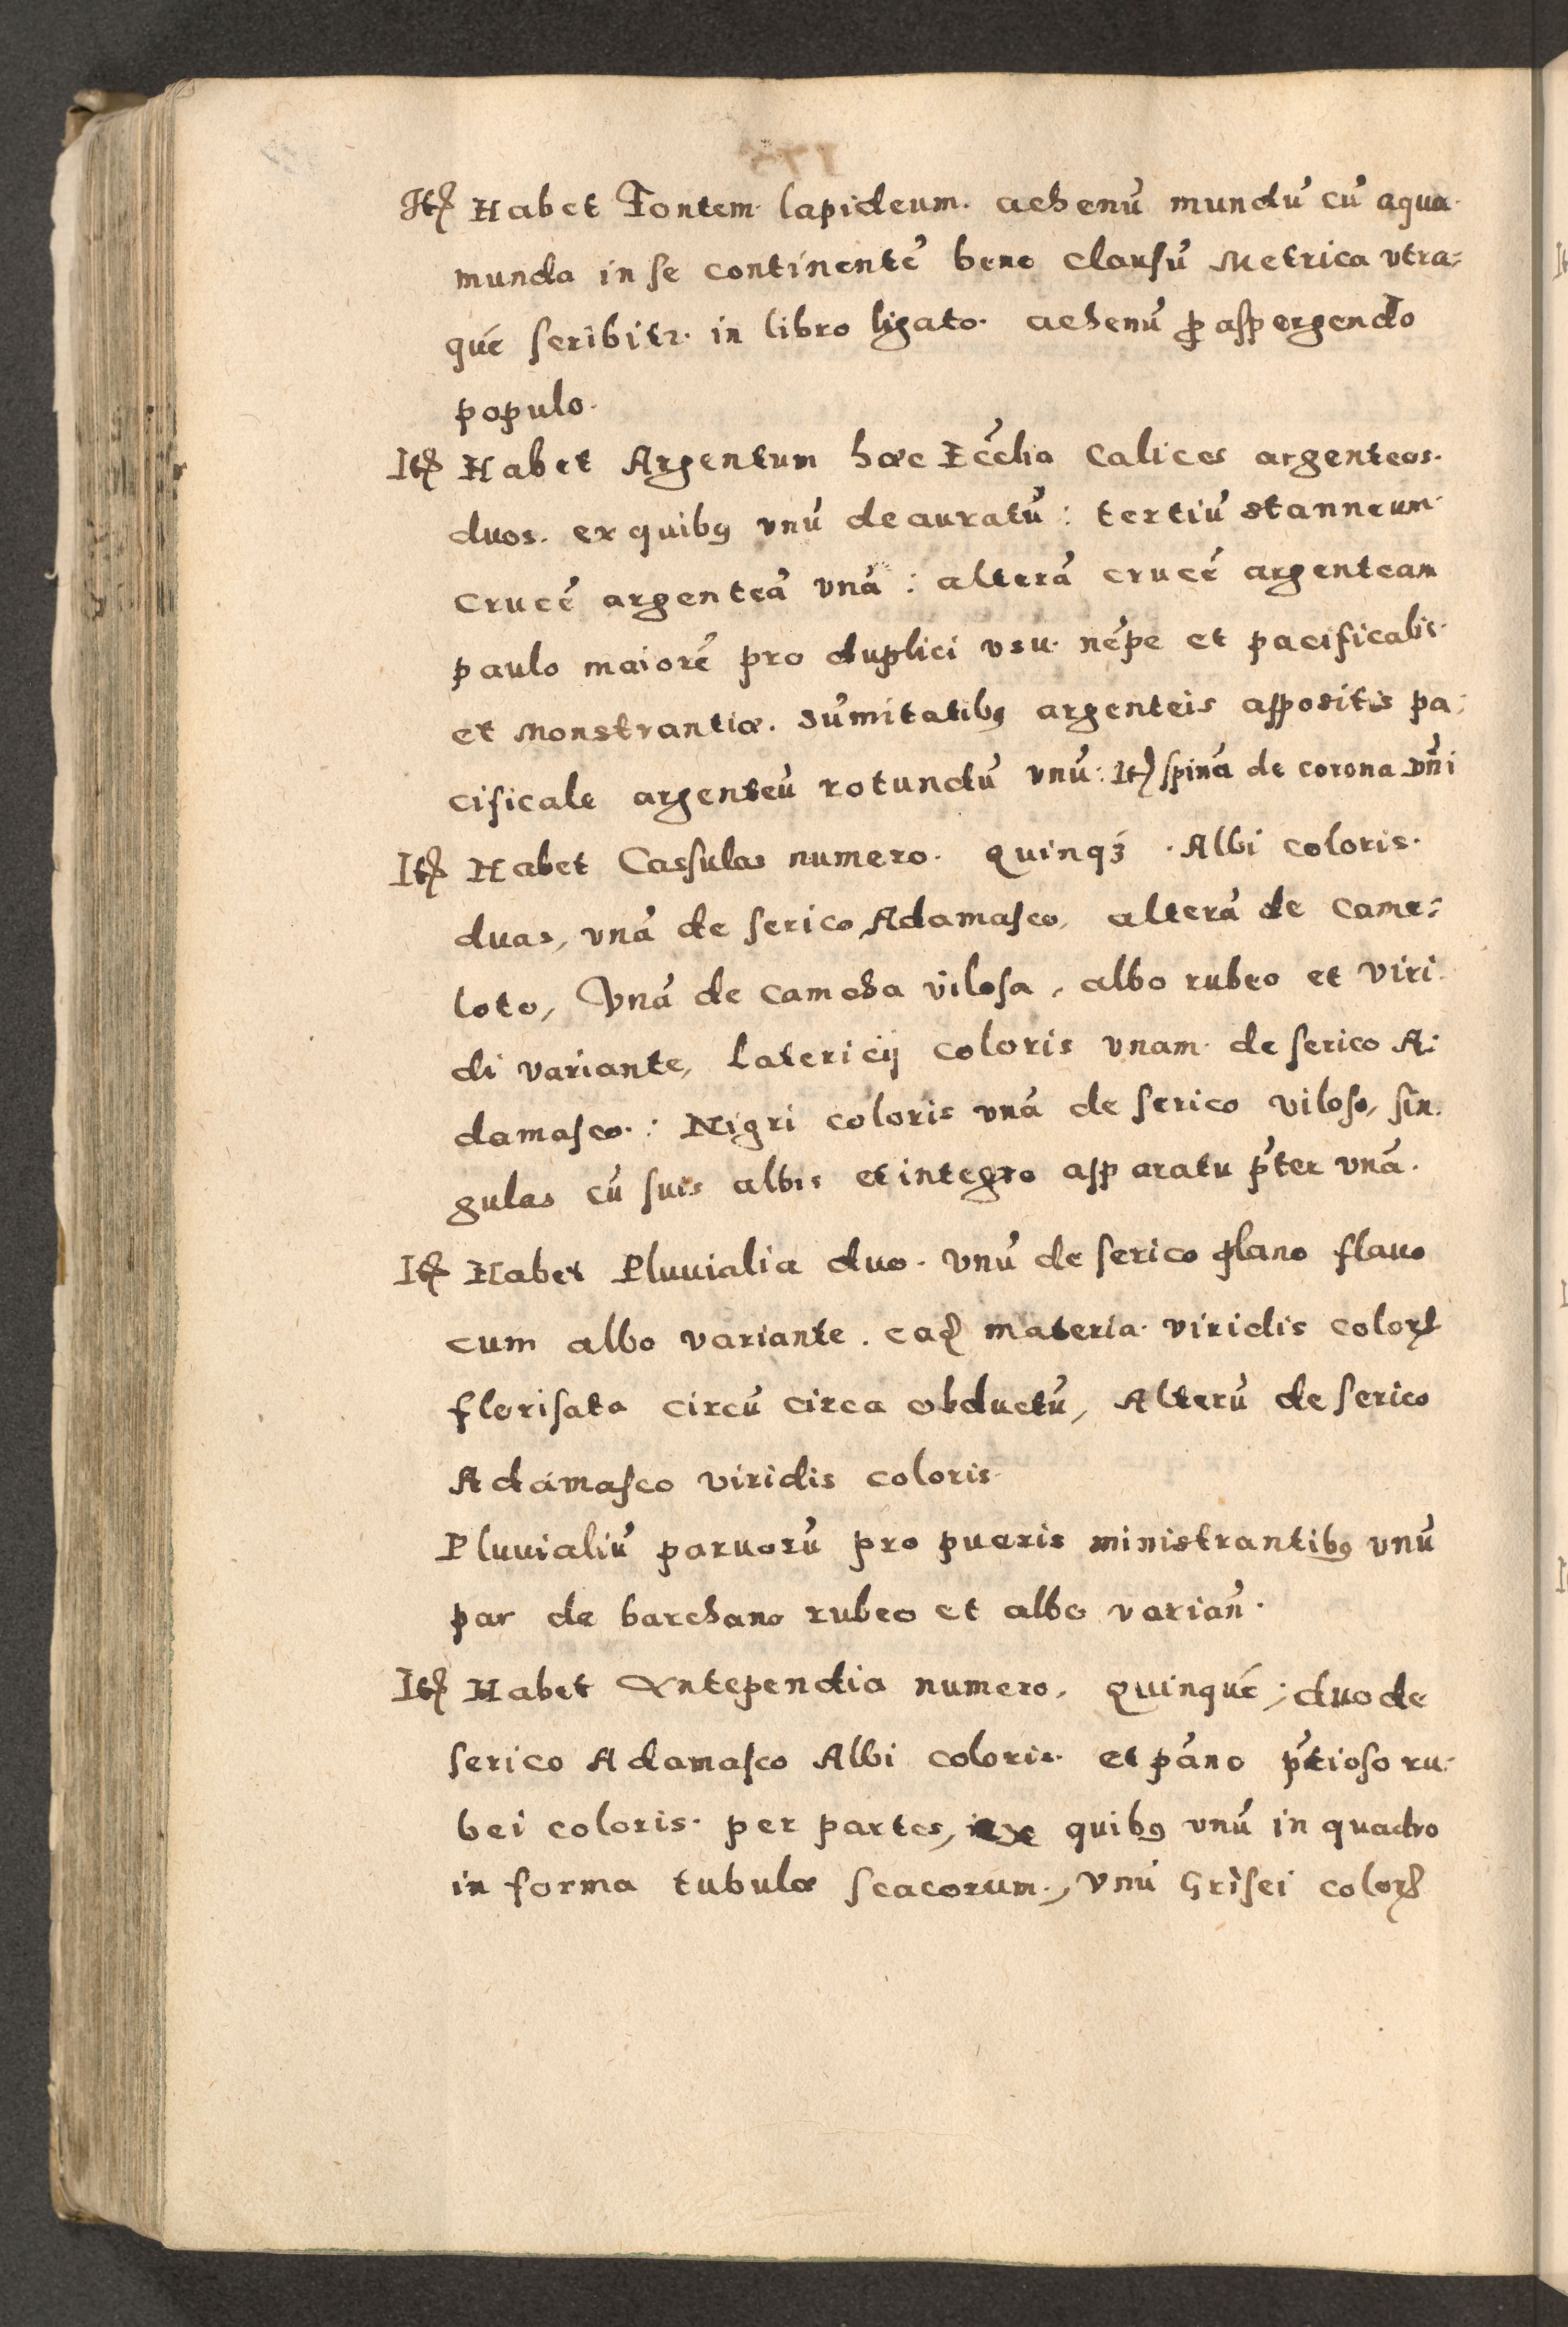 Itꝫ Habet Fontem lapideum. aehenū mundū cū aqua
munda in se continentē bene clausū Metrica vtra=
qué scribitr. in libro ligato. aehenū ꝓ aspergendo
populo.
Itꝫ Habet Argentum hæc Eccl̄ia Calices argenteos.
duos. ex quibꝰ vnū deauratū: tertiū stanneum.
Crucē argenteā vnā: alterā crucē argenteam
paulo maiorē pro duplici vsu. nēpe et pacificalis
et Monstrantiæ. Sūmitatibꝰ argenteis appositis pa=
cificale argenteū rotundū vnū: Itꝫ spinā de corona Dn̄i
Itꝫ Habet Cassulas numero. quinqꝫ. Albi coloris.
duas, vnā de serico Adamasco, alterā de Came=
loto, Vnā de Camcha vilosa, albo rubeo et viri
di variante, Latericij coloris vnam de serico A=
damasco: Nigri coloris vnā de serico viloso, sin
gulas cū suis albis et integro apparatu p̄ter vnā.
Itꝫ Habet Pluuialia duo. vnū de serico plano flauo
cum albo variante. eaꝺ materia viridis colorꝭ
florisata circū circa obductū, Alterū de serico
Adamasco viridis coloris.
Pluuialiū paruorū pro pueris ministrantibꝰ vnū
par de barchano rubeo et albo varian̄.
Itꝫ Habet Antependia numero. quinqué; duo de
serico Adamasco Albi coloris. et pāno p̄tioso ru=
bei coloris. per partes, ex quibꝰ vnū in quadro
in forma tubulæ scacorum., vnū Grisei colorꝭ